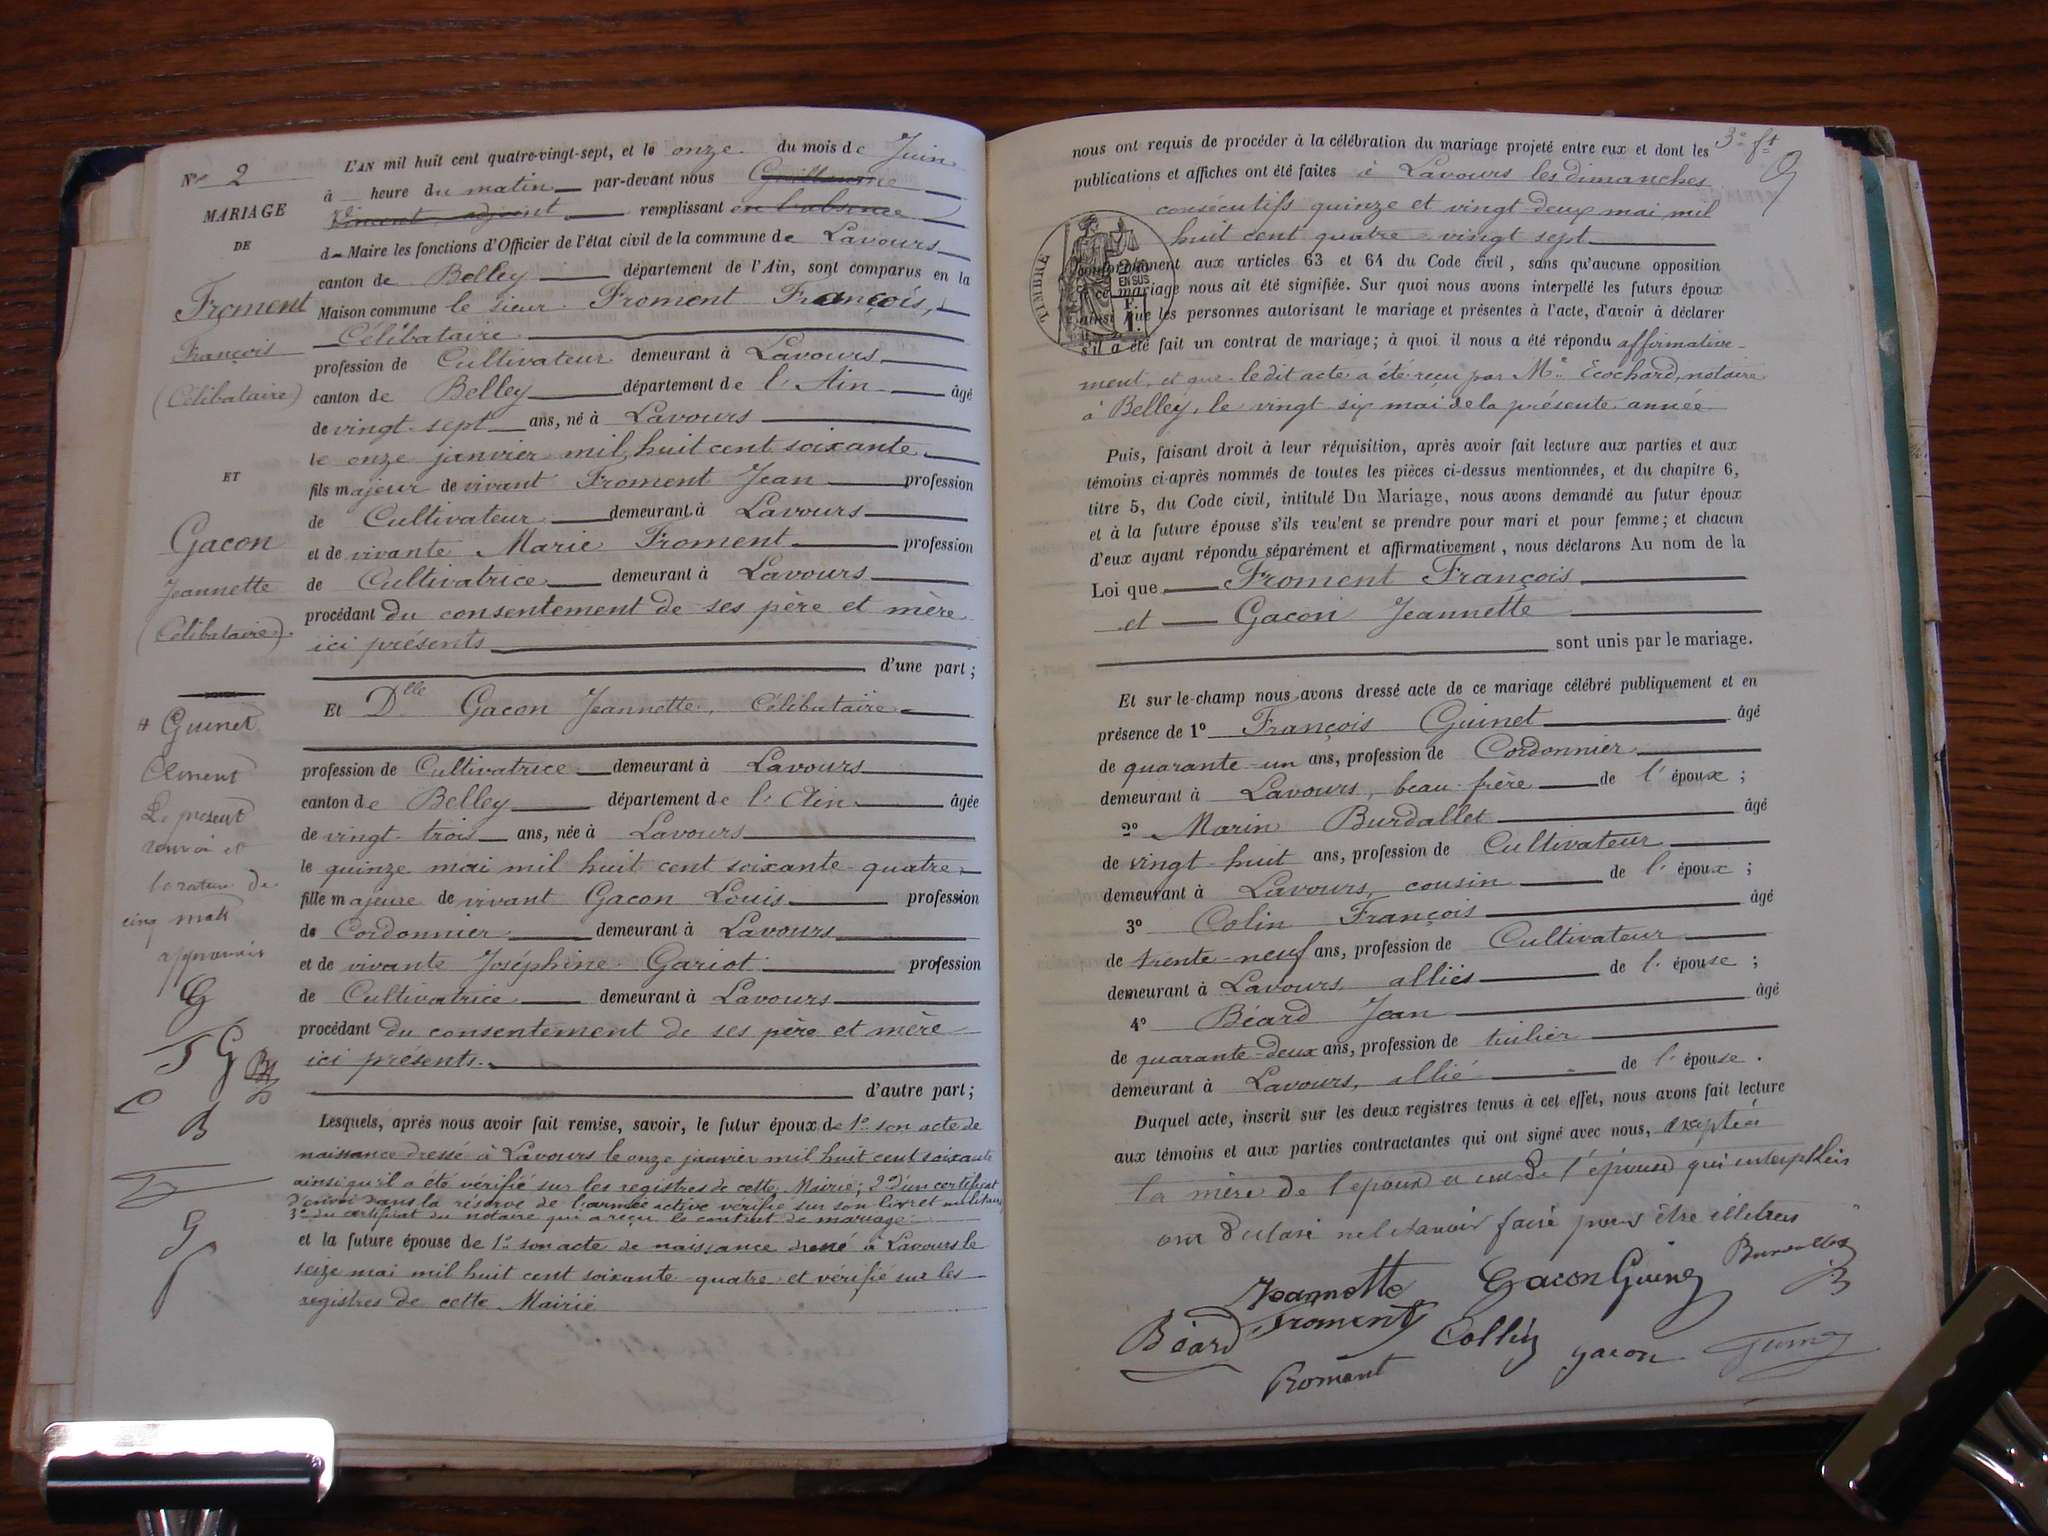 N° 2
MARIAGE
DE
Froment
François
(Célibataire)
ET
Gacon
Jeannette
(Célibataire).
# Guinet
Clément
Le présent
renvoi et
la rature de
cinq mots
approuvés
G
F G
C
B
G
L'AN mil huit cent quatre-vingt-sept, et le onze du mois de Juin
à heure du matin par-devant nous Guillaume
Vincent adjoint remplissant en l'absence
d Maire les fonctions d'Officier de l'état civil de la commune de Lavours
canton de Belley département de l'Ain, sont comparus en la
Maison commune le sieur Froment François,
Célibataire
profession de Cultivateur demeurant à Lavours
canton de Belley département de l'Ain âgé
de vingt-sept ans, né à Lavours
le onze janvier mil huit cent soixante
fils majeur de vivant Froment Jean profession
de Cultivateur demeurant à Lavours
et de vivante Marie Froment profession
de Cultivatrice demeurant à Lavours
procédant du consentement de ses père et mère
ici présents
d'une part ;
Et Dlle Gacon Jeannette, Célibataire
profession de Cultivatrice demeurant à Lavours
canton de Belley département de l'Ain âgée
de vingt-trois ans, née à Lavours
le quinze mai mil huit cent soixante-quatre
fille majeure de vivant Gacon Louis profession
de Cordonnier demeurant à Lavours
et de vivante Joséphine Gariot profession
de Cultivatrice demeurant à Lavours
procédant du consentement de ses père et mère
ici présents.
d'autre part ;
Lesquels, après nous avoir fait remise, savoir, le futur époux de 1° son acte de
naissance dressé à Lavours le onze janvier mil huit cent soixante
ainsi qu'il a été vérifié sur les registres de cette Mairie; 2° d'un certificat
d'envoi dans la réserve de l'armée active vérifié sur son livret militaire
3° du certificat du notaire qui a reçu le contrat de mariage
et la future épouse de 1° son acte de naissance dressé à Lavours le
seize mai mil huit cent soixante-quatre et vérifié sur les
registres de cette Mairie
3e ft
nous ont requis de procéder à la célébration du mariage projeté entre eux et dont les
publications et affiches ont été faites à Lavours les dimanches
consécutifs quinze et vingt-deux mai mil
huit cent quatre-vingt sept
TIMBRE
EN SUS
conformément aux articles 63 et 64 du Code civil, sans qu'aucune opposition
à ce mariage nous ait été signifiée. Sur quoi nous avons interpellé les futurs époux
ainsi que les personnes autorisant le mariage et présentes à l'acte, d'avoir à déclarer
s'il a été fait un contrat de mariage ; à quoi il nous a été répondu affirmative-
ment, et que ledit acte a été reçu par Me Ecochard, notaire
à Belley, le vingt six mai de la présente année
Puis, faisant droit à leur réquisition, après avoir fait lecture aux parties et aux
témoins ci-après nommés de toutes les pièces ci-dessus mentionnées, et du chapitre 6,
titre 5, du Code civil, intitulé Du Mariage, nous avons demandé au futur époux
et à la future épouse s'ils veulent se prendre pour mari et pour femme ; et chacun
d'eux ayant répondu séparément et affirmativement, nous déclarons Au nom de la
Loi que Froment François
et Gacon Jeannette
sont unis par le mariage.
Et sur-le-champ nous avons dressé acte de ce mariage célébré publiquement et en
présence de 1° François Guinet âgé
de quarante-un ans, profession de Cordonnier
demeurant à Lavours, beau-frère de l'époux ;
2° Marin Burdallet âgé
de vingt-huit ans, profession de Cultivateur
demeurant à Lavours, cousin de l'époux ;
3° Colin François âgé
de trente-neuf ans, profession de Cultivateur
demeurant à Lavours alliés de l'épouse ;
4° Béard Jean âgé
de quarante-deux ans, profession de tuilier
demeurant à Lavours, allié de l'épouse.
Duquel acte, inscrit sur les deux registres tenus à cet effet, nous avons fait lecture
aux témoins et aux parties contractantes qui ont signé avec nous, exceptées
la mère de l'époux et celle de l'épouse qui
ont déclaré ne le savoir faire pour être illétrées
Jeannette Gacon Guinet Burdallet
Béard Froment Collin gacon
Froment